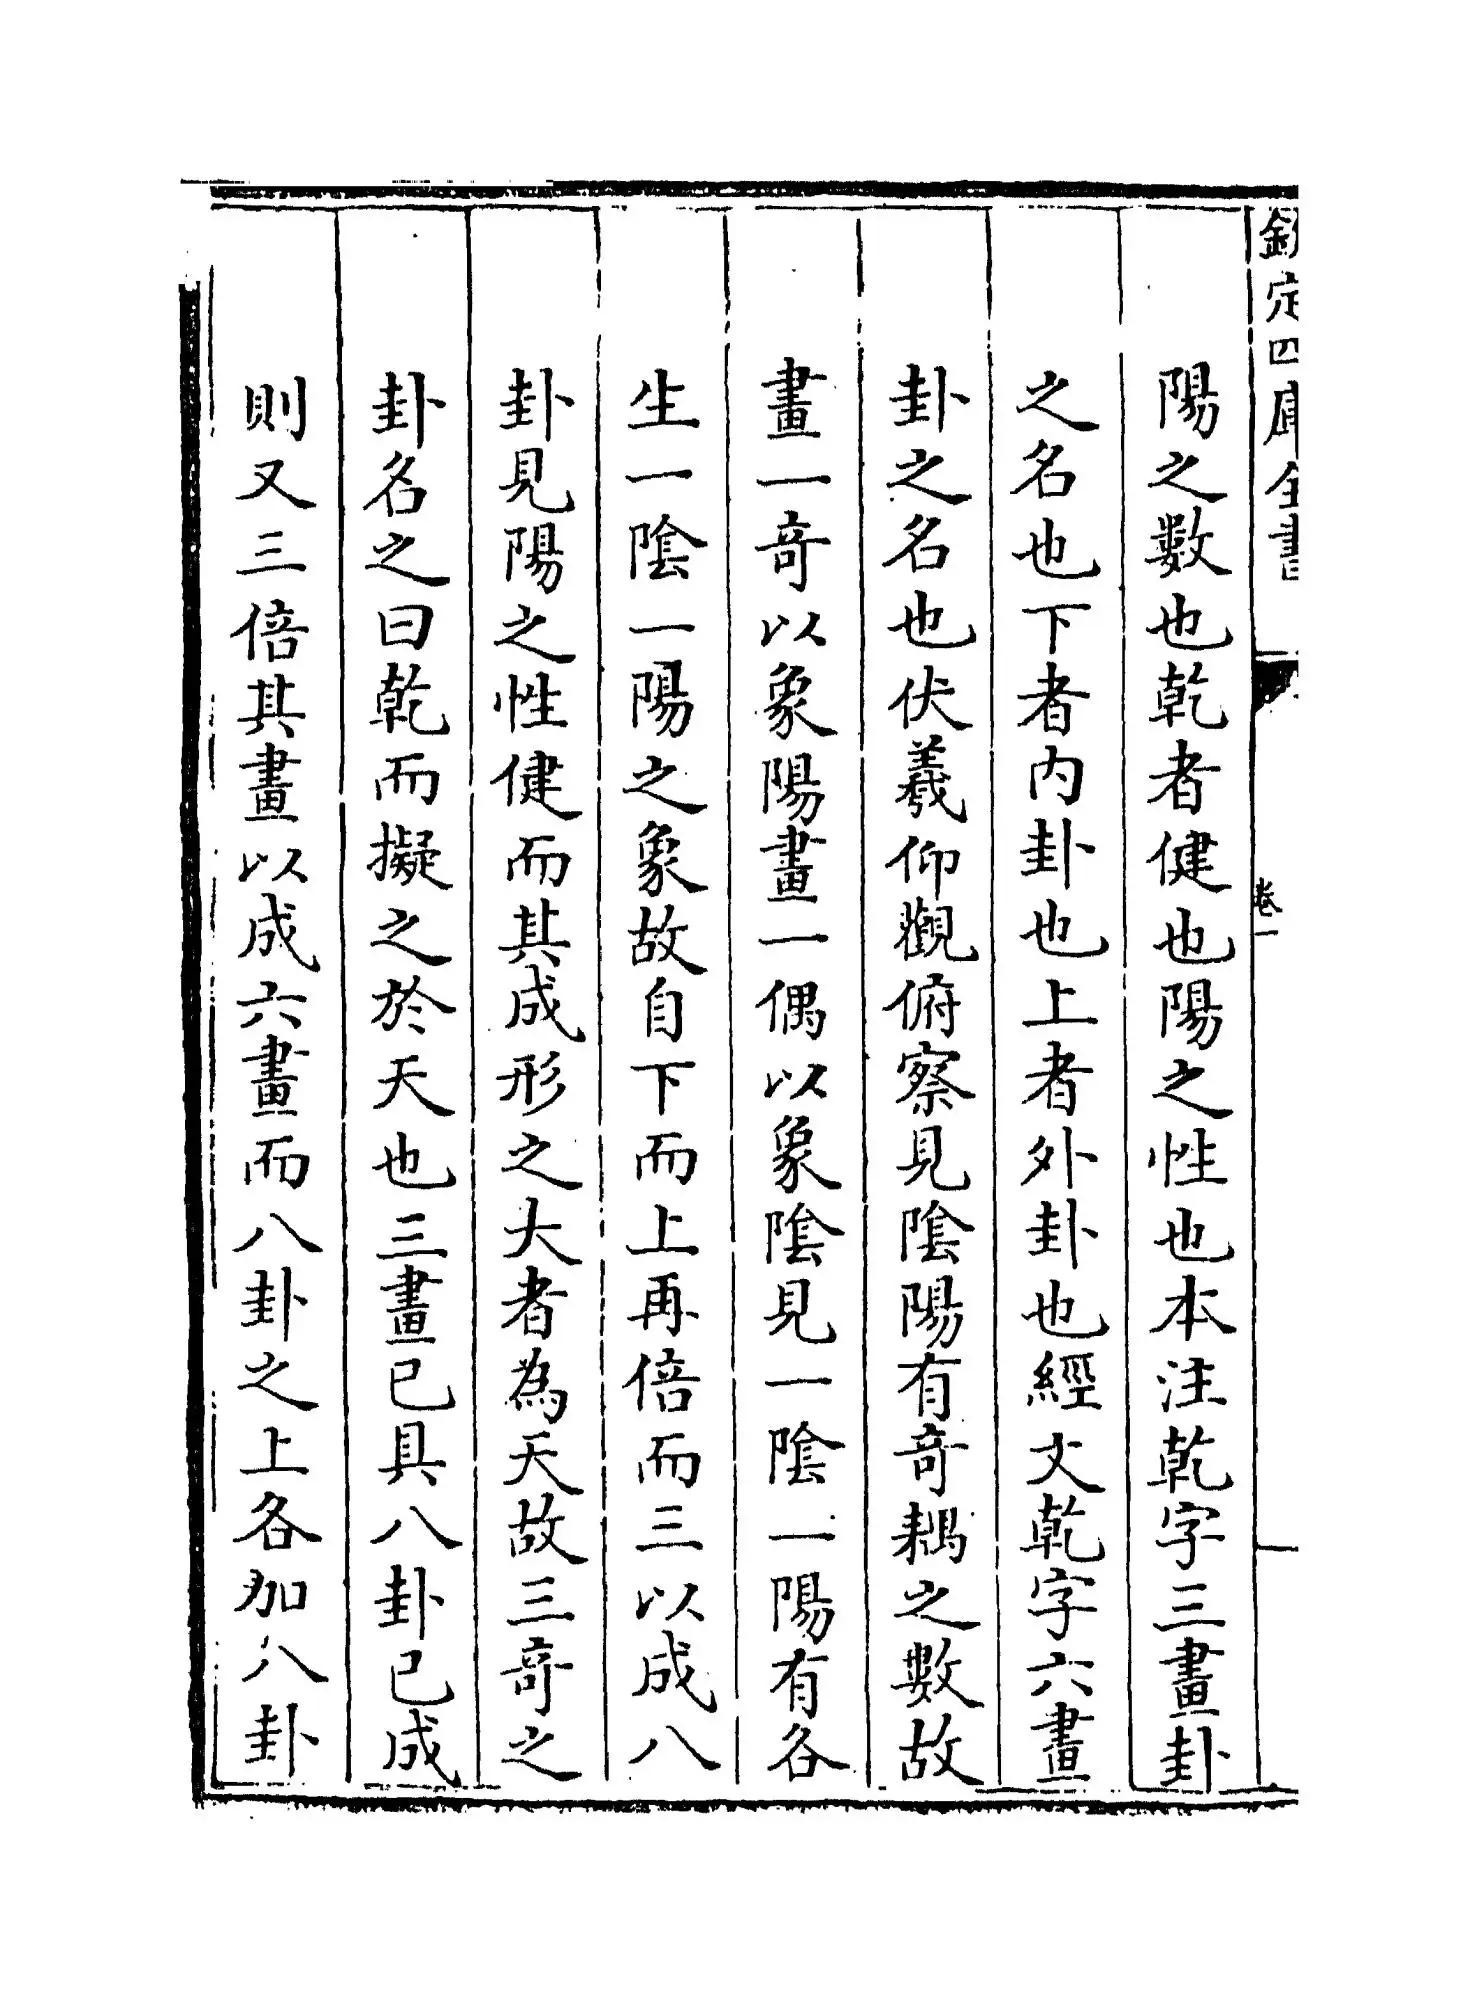 欽定四庫全書
卷一
陽之數也乾者健也陽之性也本注乾字三畫卦
之名也下者内卦也上者外卦也經文乾字六畫
卦之名也伏羲仰觀俯察見陰陽有奇耦之數故
畫一奇以象陽畫一偶以象陰見一陰一陽有各
生一陰一陽之象故自下而上再倍而三以成八
卦見陽之性健而其成形之大者為天故三奇之
卦名之曰乾而擬之於天也三畫已具八卦已成
則又三倍其畫以成六畫而八卦之上各加八卦